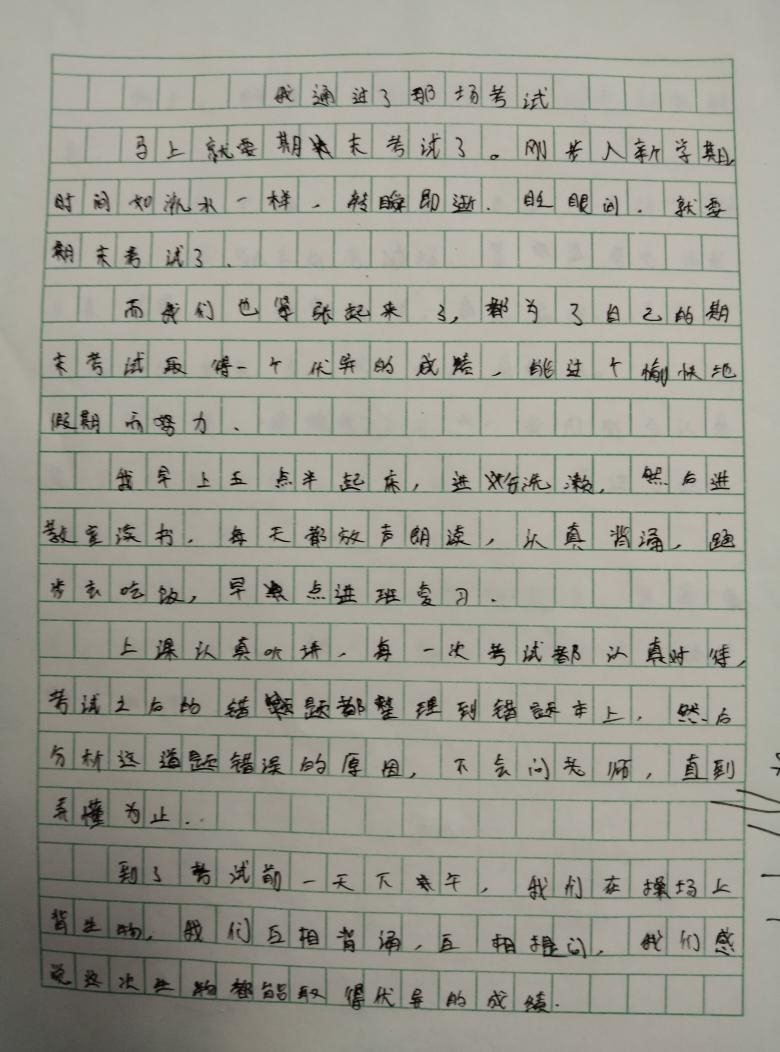 我通过了那场考试
马上就要期末考试了。刚步入新学期,
时间如流水一样，转瞬即逝.眨眼间.就要
期末考试了.
而我们也紧张起来了,都为了自己的期
末考试取得一个优异的成绩，能过个愉快地
假期而努力.
我早上五点半起床，进洗漱，然后进
教室读书.每天都放声朗读，认真背诵，跑
步去吃饭，早点进班复习.
上课认真听讲，每一次考试都认真对待,
考试之后的错题都整理到错题本上.然后
分析这道题错误的原因，不会问老师，直到
弄懂为止..
到了考试前一天下午，我们在操场上
背生物，我们互相背诵，互相提问，我们感
觉这次生物都能取得优异的成绩.